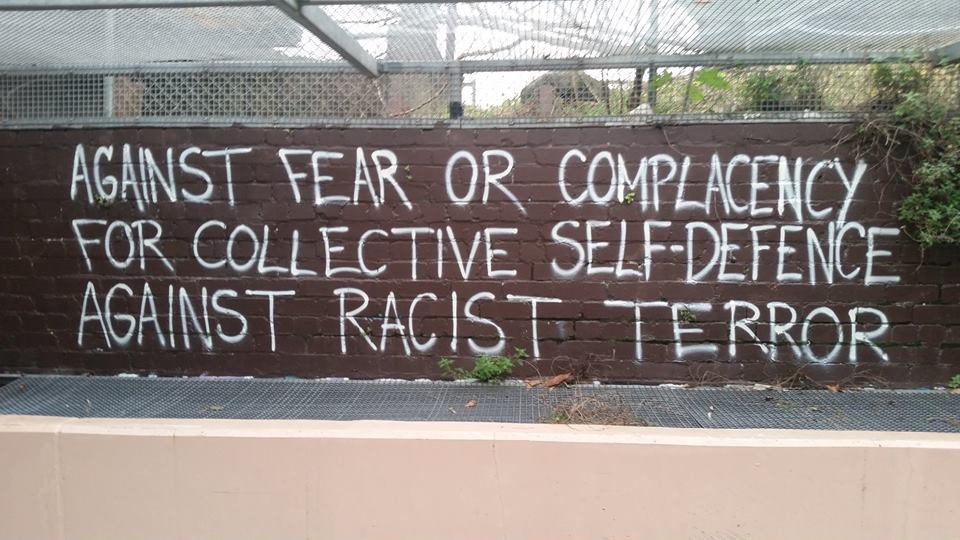 AGAINST FEAR OR COMPLACENCY
FOR COLLECTIVE SELF-DEFENCE
AGAINST RACIST TERROR